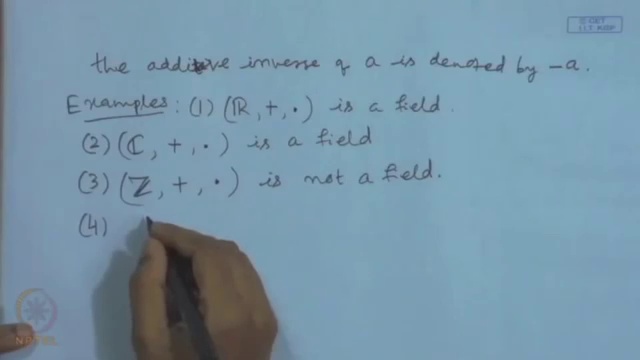 © CET
I.I.T. KGP
the additive inverse of a is denoted by -a.
Examples: (1) (ℝ, +, ·) is a field.
(2) (ℂ, +, ·) is a field
(3) (ℤ, +, ·) is not a field.
(4)
NPTEL